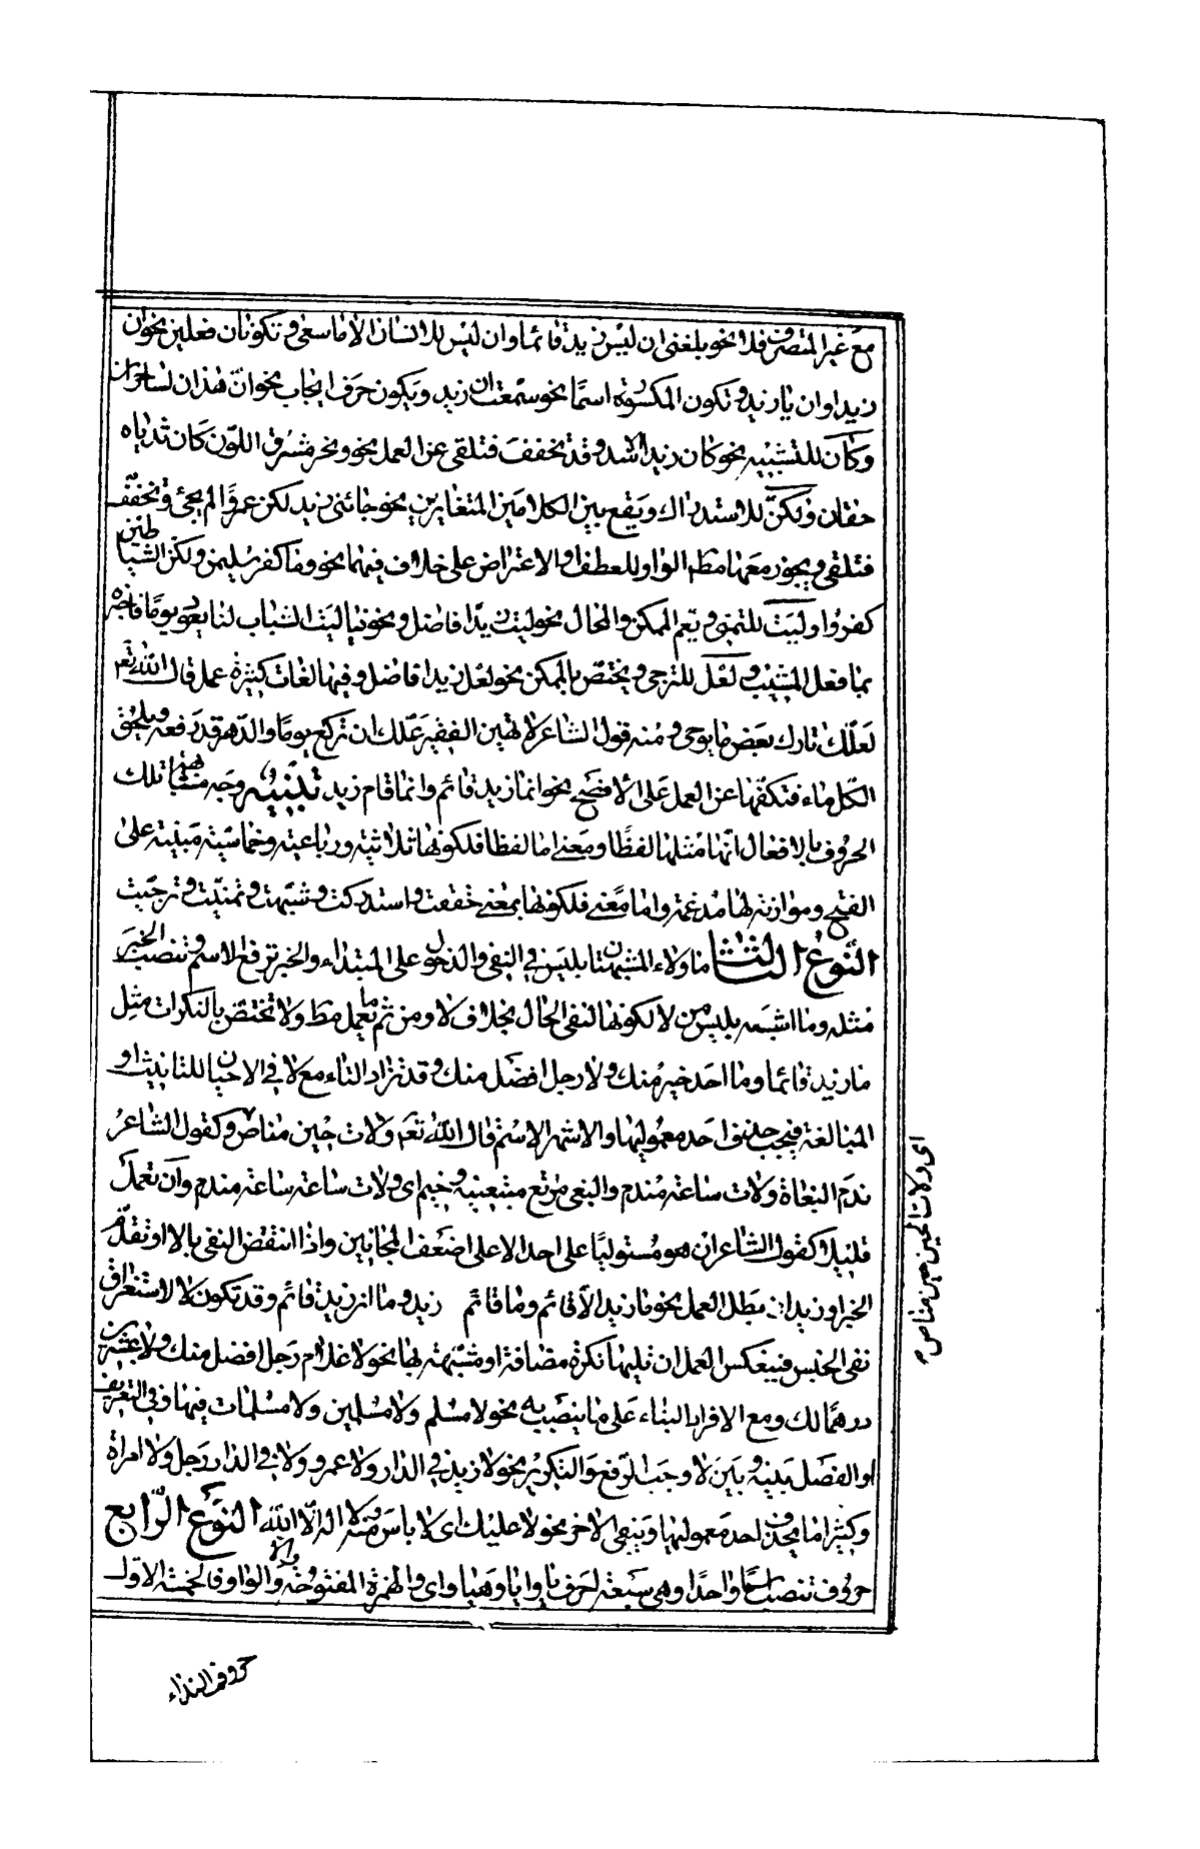 مع غير المتصرف فلا نحو بلغنى ان ليس زيد قائما وان ليس للانسان الا ما سعى وتكونان فعلين نحو ان
زيدا وان يا زيد وتكون المكسورة اسما نحو سمعت ان زيد ويكون حرف ايجاب نحو ان هذان لساحران
وكأن للتشبيه نحو كان زيدا الاسد وقد يخفف فتلقى عن العمل نحو ونحر مشرق اللون كان ثدياه
حقان ولكن للاستدراك ويقع بين الكلامين المتغايرين نحو جائنى زيد لكن عمروا لم يجئ وتخفف
فتلقى ويجوز معها مط الواو للعطف او الاعتراض على خلاف فيهما نحو وما كفر سليمن ولكن الشياطين
كفروا وليت للتمنى وتعم الممكن والمحال نحو ليت زيدا فاضل ونحو فيا ليت الشباب لنا يعود يوما فاخبره
بما فعل المشيب ولعل للترجى ويختص بالممكن نحو لعل زيدا فاضل وفيها لغات كثيرة عمل قال الله تعم
لعلك تارك بعض ما يوحى ومنه قول الشاعر لا تهين الفقير علك ان تركع يوما والدهر قد رفعه ويلحق
الكل ماء فتكفها عن العمل على الافصح نحو انما زيد قائم وانما قام زيد تنبيه وجه مشابهة تلك
الحروف بالافعال انها مثلها لفظا ومعنى اما لفظا فلكونها ثلاثية ورباعية وخماسية مبنية على
الفتح وموازنة لها مدغمة واما معنى فلكونها بمعنى حققت واستدركت وشبهت وتمنيت وترجيت
النوع الثالث ما ولاء المشبهتان بليس فى النفى والدخول على المبتداء والخبر ترفع الاسم وتنصب الخبر
مثله وما اشبه بليس من لا لكونها لنفى الحال بخلاف لا ومن ثم تعمل ما مط ولا تختص بالنكرات مثل
ما زيد قائما وما احد خير منك ولا رجل افضل منك وقد تزاد التاء مع لا فى الاحيان للتانيث او
المبالغة فيجب حذف احد معموليها والاشهر الاسم قال الله تعم ولات حين مناص وكقول الشاعر
ندم البغاة ولات ساعة مندم والبغى مرتع مبتغيه وخيم اى ولات ساعة ساعة مندم وان تعمل
قليلا كقول الشاعر ان هو مستوليا على احد الا على اضعف المجانين واذا انتقض النفى بالا او تقدم
الخبر او زيد ان بطل العمل نحو ما زيد الا قائم وما قائم زيد وما ان زيد قائم وقد تكون لا لاستغراق
نفى الجنس فينعكس العمل ان تليها نكرة مضافة او مشبهة بها نحو لا غلام رجل افضل منك ولا عشرين
درهما لك ومع الافراد البناء على ما ينصب به نحو لا مسلم ولا مسلمين ولا مسلمات فيها وفى التعريف
او الفصل بينه وبين لا وجب الرفع والتكرير نحو لا زيد فى الدار ولا عمرو ولا فى الدار رجل ولا امراة
وكثيرا ما يحذف احد معموليها ويبقى الاخر نحو لا عليك اى لا باس ومنه لا اله الا الله النوع الرابع
حروف تنصب اسما واحدا وهى سبعة احرف يا وايا وهيا واى والهمزة المفتوحة والا والواو فالخمسة الاول
حروف النداء
اى ولات الحين حين مناص